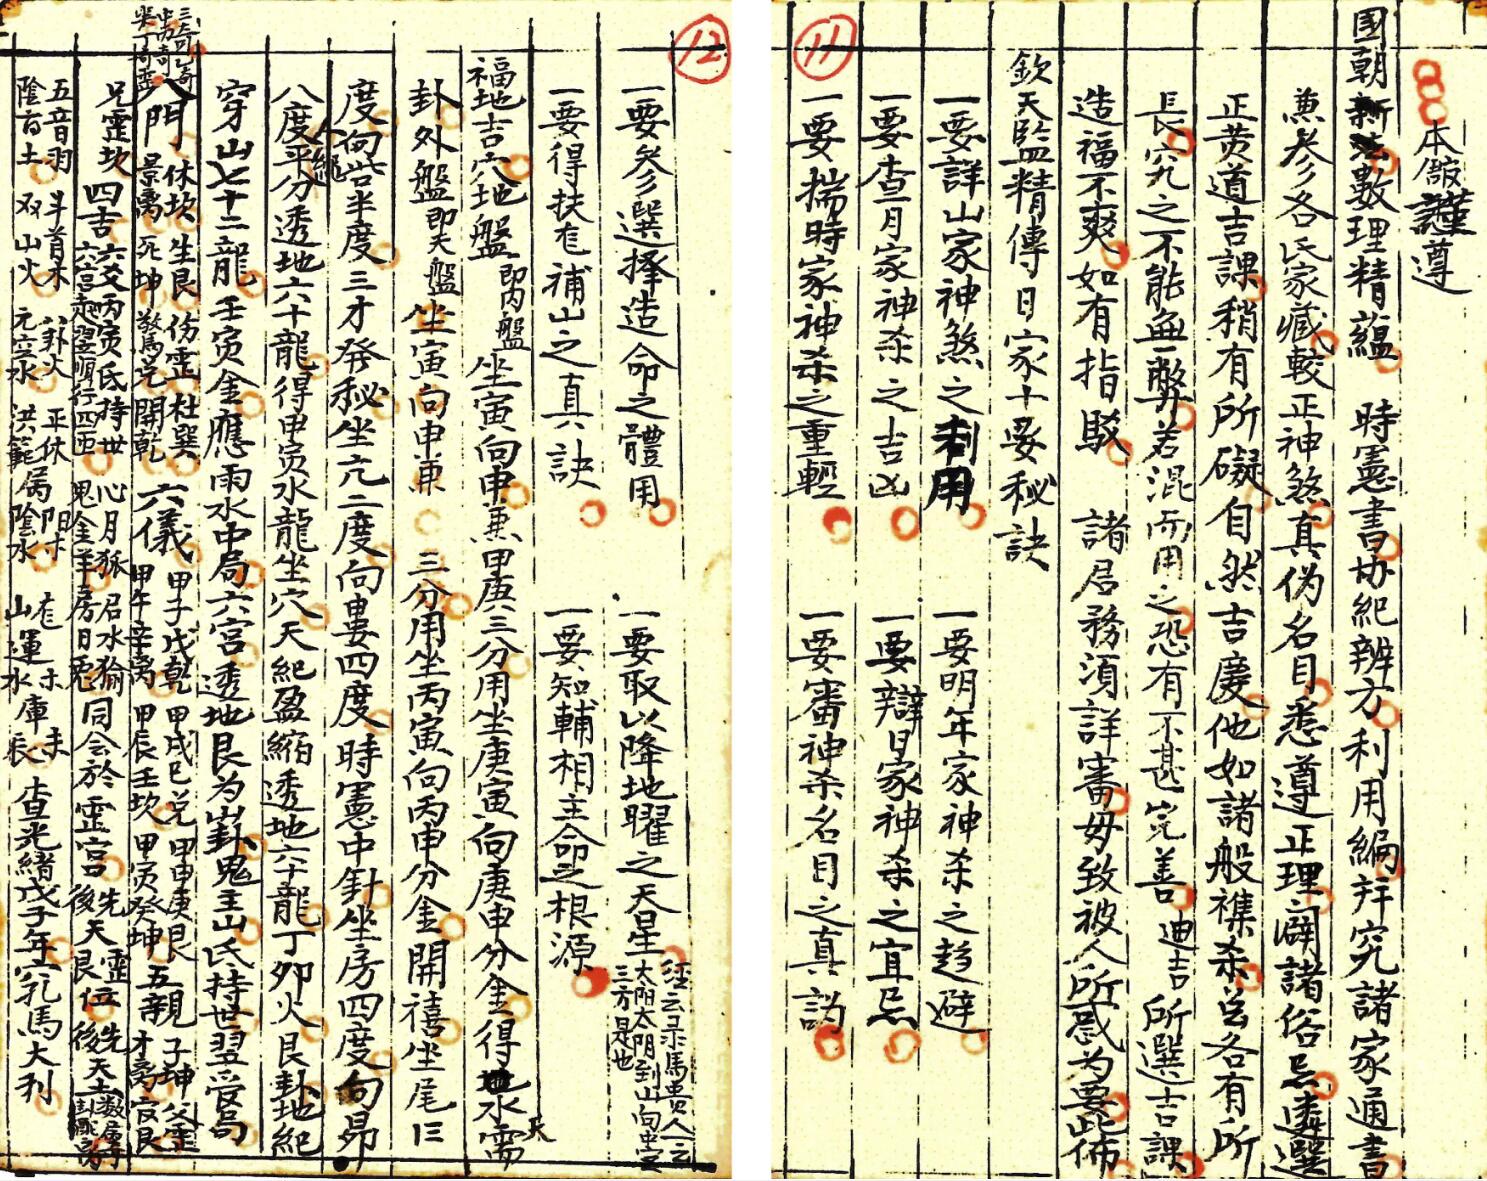 11
本館謹遵
國朝新法數理精蘊 時憲書协紀辨方利用編并究諸家通書
兼參各氏家藏較正神煞真伪名目悉遵正理闢諸俗忌遴選
正黄道吉課稍有所礙自然吉慶他如諸般襍杀名各有所
長究之不能無弊若混而用之恐有不甚完善 迪吉 所選吉課
造福不爽如有指駁 諸君務須詳審毋致被人所惑为要此佈
欽天監精傳日家十要秘訣
一要詳山家神煞之利用 一要明年家神杀之趋避
一要查月家神杀之吉凶 一要辯日家神杀之宜忌
一要揣時家神杀之重輕 一要審神杀名目之真訣
12
一要參選擇造命之體用 一要取以降地曜之天星 經云录馬貴人一云太阳太阴到山向中宮三方是也
一要得扶龙補山之真訣 一要知輔相主命之根源
福地吉穴地盤 即内盤 坐寅向申兼甲庚三分用坐庚寅向庚申分金得地水需 天
卦外盤 即天盤 坐寅向申兼 三分用坐丙寅向丙申分金開禧坐尾三
度向觜半度三才發秘坐亢二度向婁四度時憲中針坐房四度向昴
八度平分透地六十龍得甲寅水龍坐穴天紀盈縮透地六十龍丁卯火艮卦地紀
穿山七十二龍壬寅金應雨水中局六宮透地艮为卦鬼主山氏持世翌受局
三奇乙奇
八門 休坎 生艮 伤震 杜巽 景离 死坤 驚兑 開乾 六儀 甲子戊乾 甲戌已兑 甲申庚艮 甲午辛离 甲辰壬坎 甲寅癸坤 五親 子坤 父震 才离 官艮
兄震坎 四吉 六爻丙寅氏持世 六宮起翌順行四匝 心月狐 启水獝 鬼金羊 房日兎 同会於震宮 先 後天艮位 先 後天
五音羽 斗首木 八卦火 平休 阳木 陰百土 双山火 元空水 洪範属陰水 山運水庫辰 查光緒戊子年穴乳馬大利